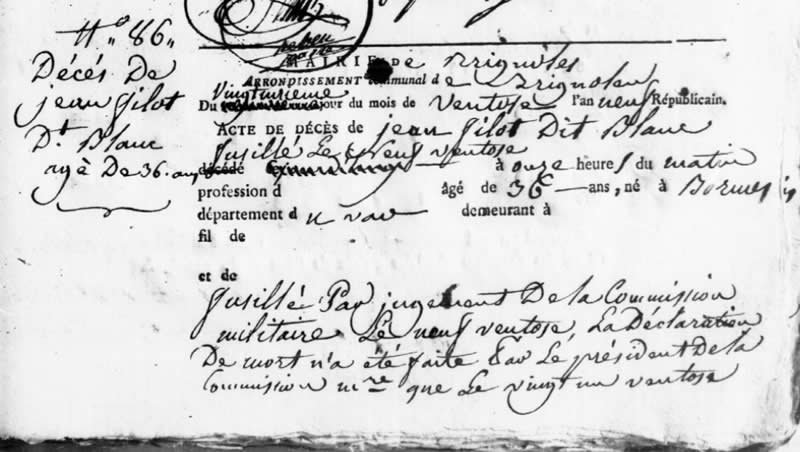 N.º 86.
Décés De
jean jilot
D.t Blanc
agé De 36. ans
MAIRIE de Brignoles
ARRONDISSEMENT communal de Brignoles
Du vingtunieme jour du mois de ventose l'an neuf Républicain.
ACTE DE DÉCÈS de jean jilot Dit Blanc
fusillé Le neuf ventose
décédé à onze heures du matin
profession d âgé de 36 ans, né à Bormes
département du var demeurant à
fil de
et de
fusillé Par jugement De la Commission
militaire Le neuf ventose, La Déclaration
De mort n'a été faite Par Le président De la
Commission m.re que Le vingt un ventose